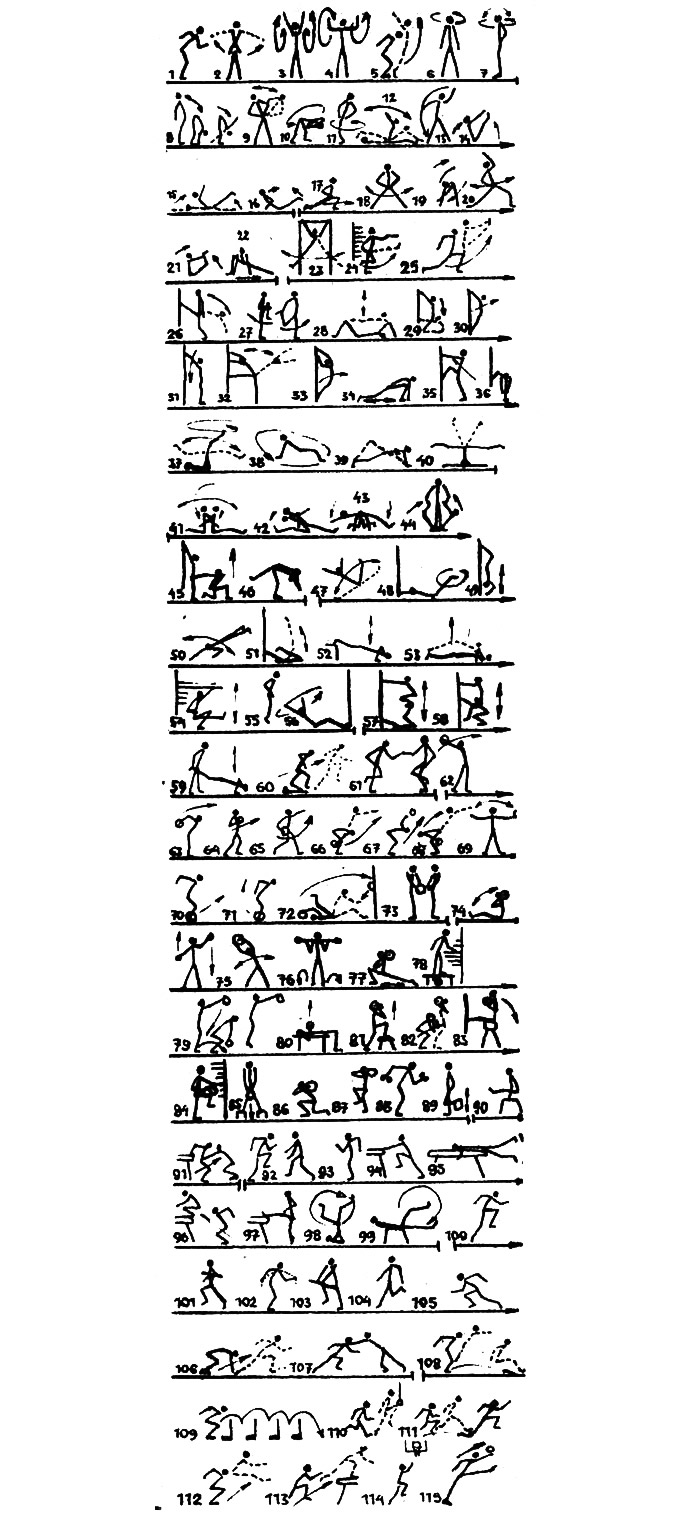 1 2 3 4 5 6 7
8 9 10 11 12 13 14
15 16 17 18 19 20
21 22 23 24 25
26 27 28 29 30
31 32 33 34 35 36
37 38 39 40
41 42 43 44
45 46 47 48 49
50 51 52 53
54 55 56 57 58
59 60 61 62
63 64 65 66 67 68 69
70 71 72 73 74
75 76 77 78
79 80 81 82 83
84 85 86 87 88 89 90
91 92 93 94 95
96 97 98 99 100
101 102 103 104 105
106 107 108
109 110 111
112 113 114 115